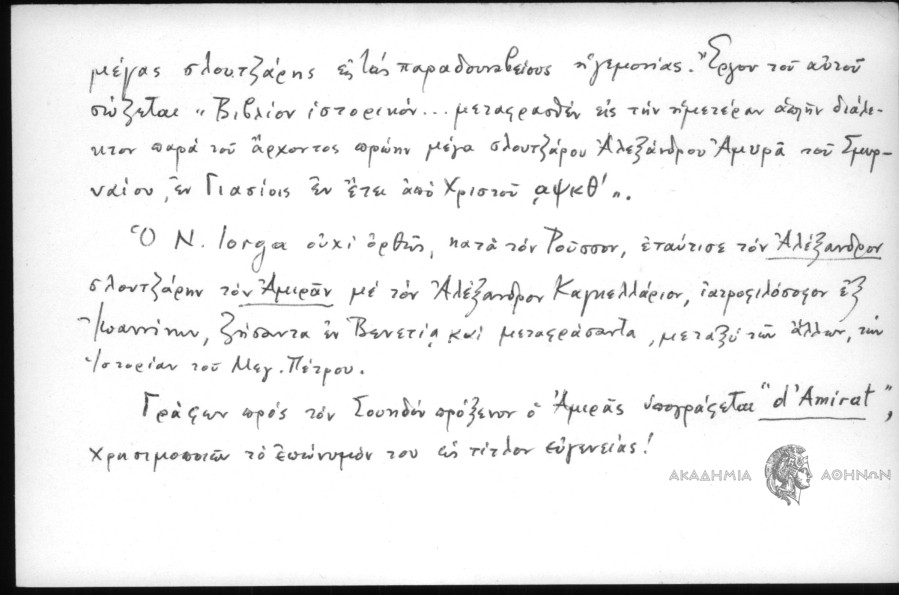 μέγας σλουτζάρης εἰς τὰς παραδουναβείους ἡγεμονίας. Ἔργον τοῦ αὐτοῦ
σώζεται "Βιβλίον ἱστορικόν... μεταφρασθὲν εἰς τὴν ἡμετέραν ἁπλῆν διάλε-
κτον παρὰ τοῦ ἄρχοντος πρώην μέγα σλουτζάρου Ἀλεξάνδρου Ἀμυρᾶ τοῦ Σμυρ-
ναίου, ἐν Γιασίοις ἐν ἔτει ἀπὸ Χριστοῦ ͵αψκθ'".
Ὁ N. Iorga οὐχὶ ὀρθῶς, κατὰ τὸν Ροῦσσον, ἐταύτισε τὸν Ἀλέξανδρον
σλουτζάρην τὸν Ἀμιρᾶν μὲ τὸν Ἀλέξανδρον Καγκελλάριον, ἰατροφιλόσοφον ἐξ
Ἰωαννίνων, ζήσαντα ἐν Βενετίᾳ καὶ μεταφράσαντα, μεταξὺ τῶν ἄλλων, τὴν
Ἱστορίαν τοῦ Μεγ. Πέτρου.
Γράφων πρὸς τὸν Σουηδὸν πρόξενον ὁ Ἀμιρᾶς ὑπογράφεται "d'Amirat",
χρησιμοποιῶν τὸ ἐπώνυμόν του ὡς τίτλον εὐγενείας!
ΑΚΑΔΗΜΙΑ ΑΘΗΝΩΝ